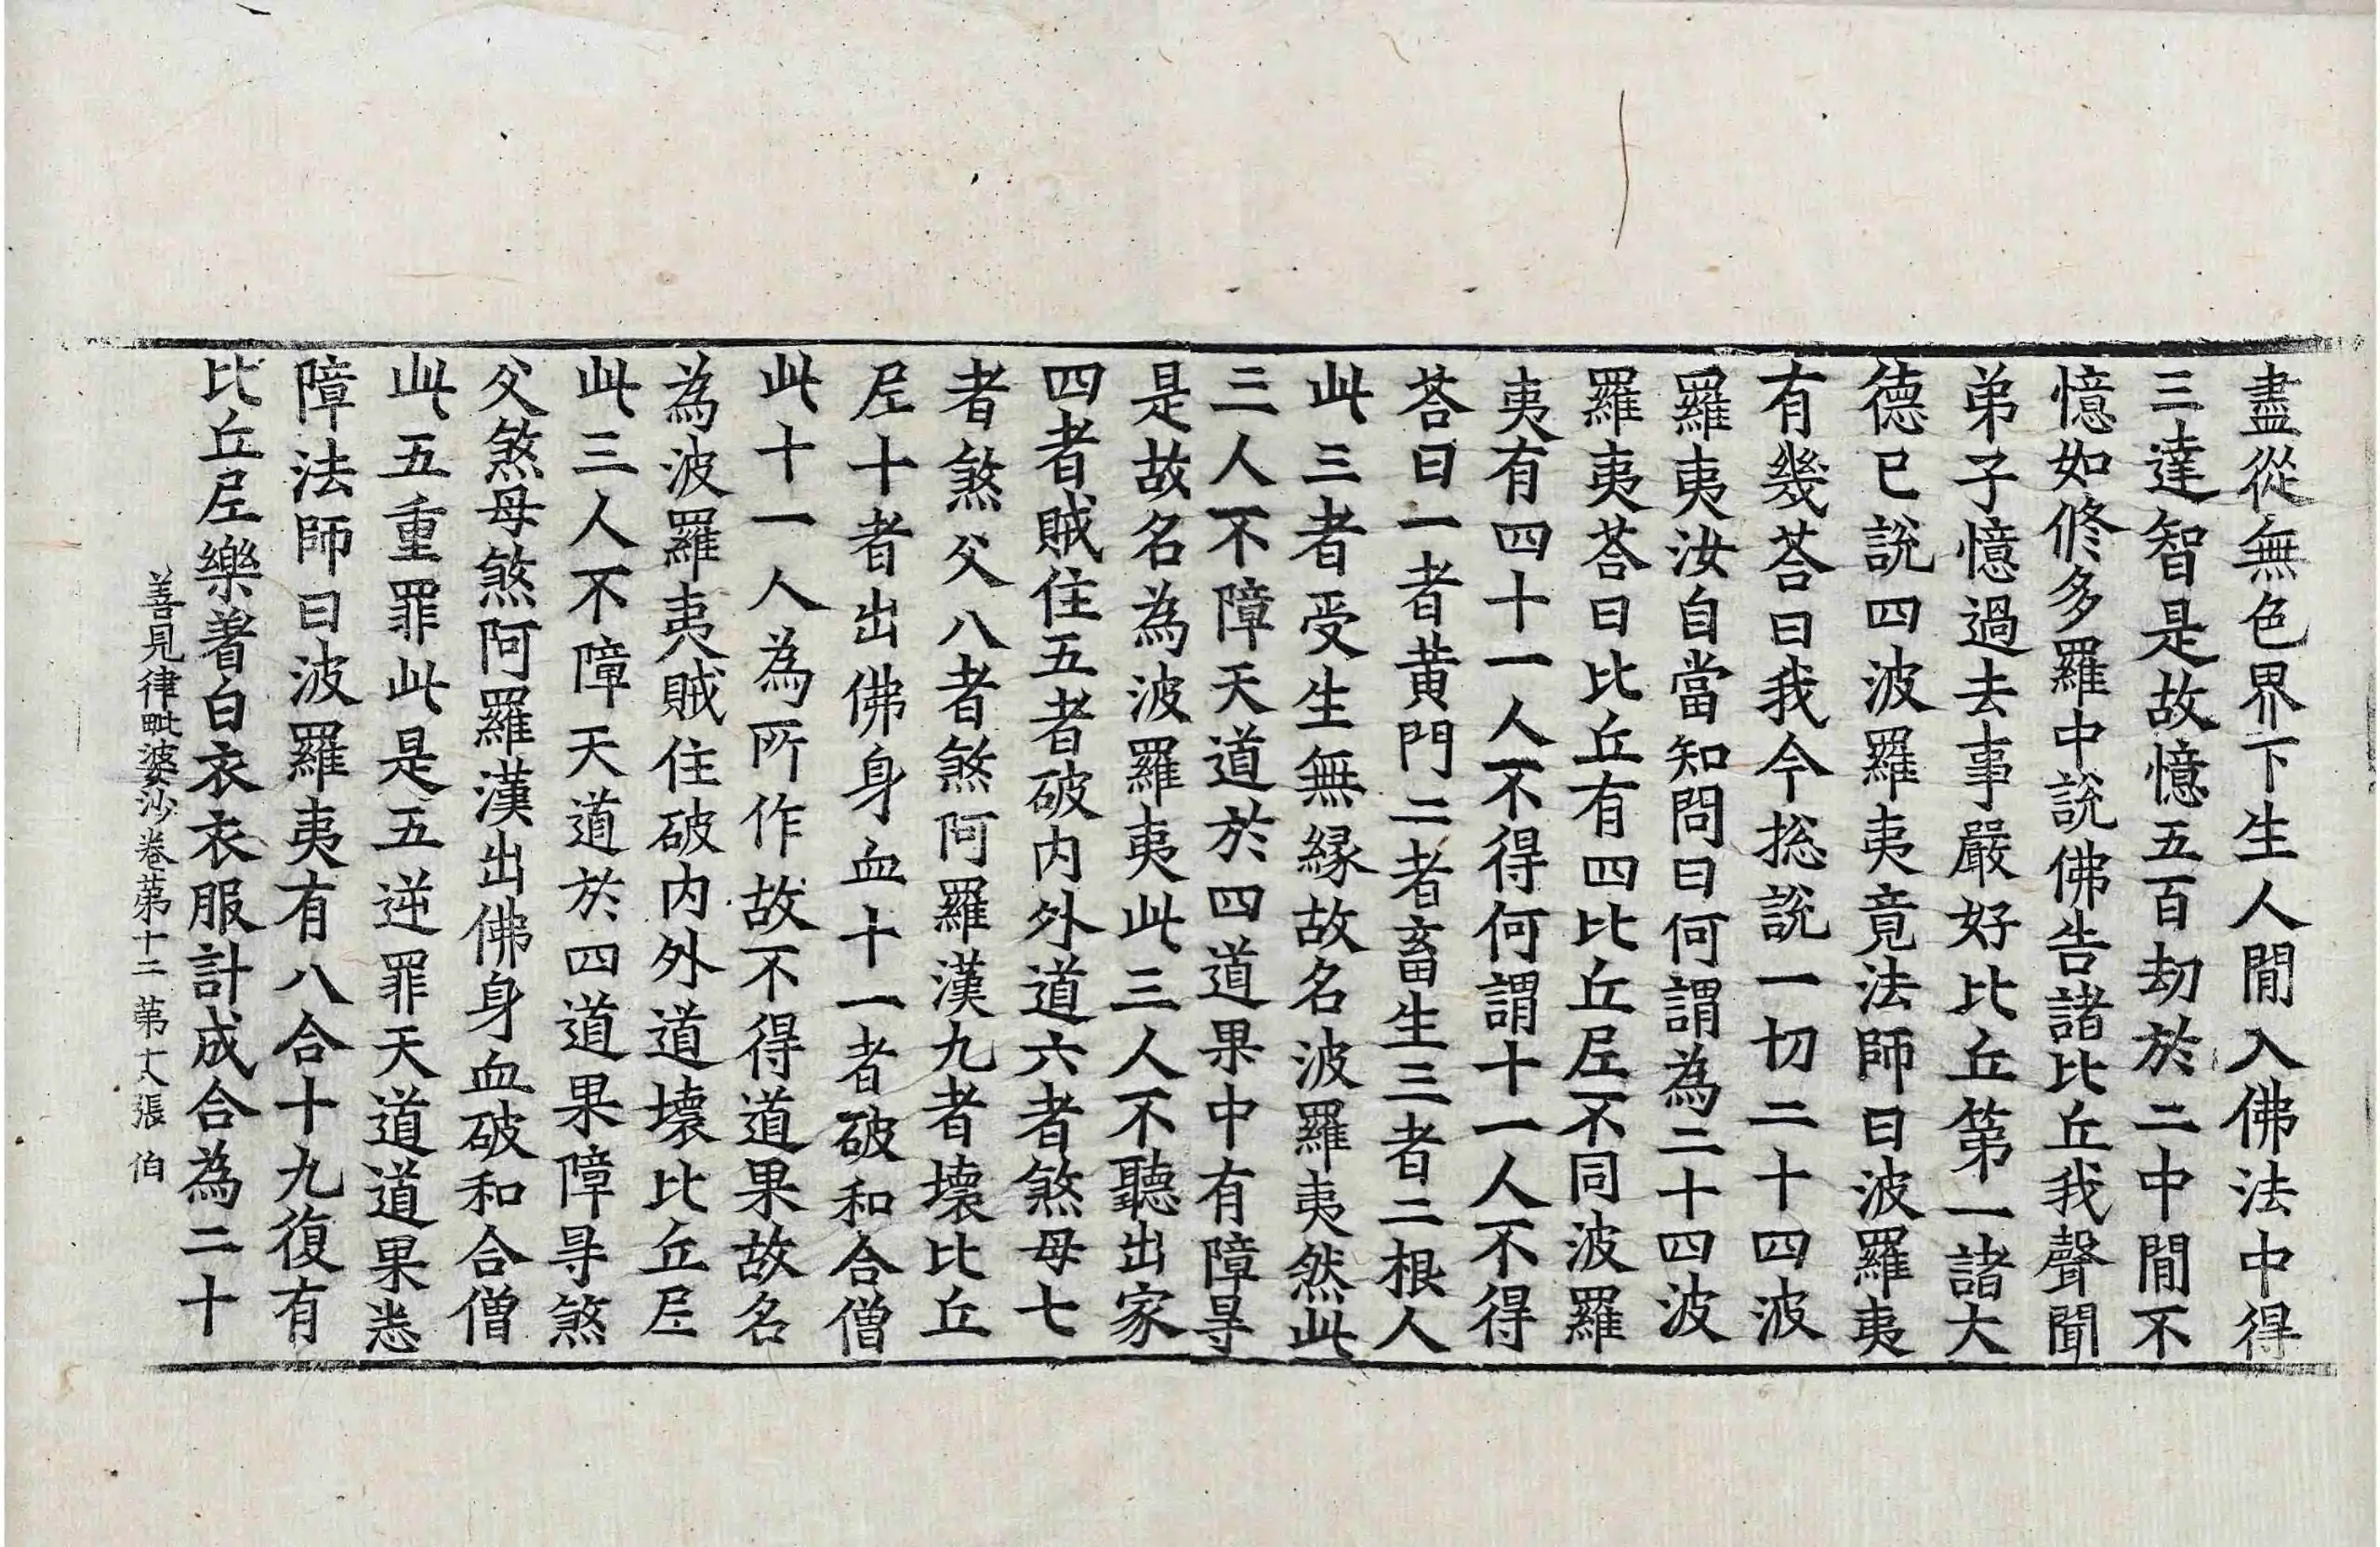 盡從無色界下生人閒入佛法中得
三達智是故憶五百劫於二中閒不
憶如修多羅中說佛告諸比丘我聲聞
弟子憶過去事嚴好比丘第一諸大
德已說四波羅夷竟法師曰波羅夷
有幾荅曰我今捴說一切二十四波
羅夷汝自當知問曰何謂為二十四波
羅夷荅曰比丘有四比丘尼不同波羅
夷有四十一人不得何謂十一人不得
荅曰一者黄門二者畜生三者二根人
此三者受生無緣故名波羅夷然此
三人不障天道於四道果中有障㝵
是故名為波羅夷此三人不聽出家
四者賊住五者破内外道六者煞母七
者煞父八者煞阿羅漢九者壞比丘
尼十者出佛身血十一者破和合僧
此十一人為所作故不得道果故名
為波羅夷賊住破内外道壞比丘尼
此三人不障天道於四道果障㝵煞
父煞母煞阿羅漢出佛身血破和合僧
此五重罪此是五逆罪天道道果悉
障法師曰波羅夷有八合十九復有
比丘尼樂著白衣衣服計成合為二十
善見律毗婆沙卷第十二 第 張 伯